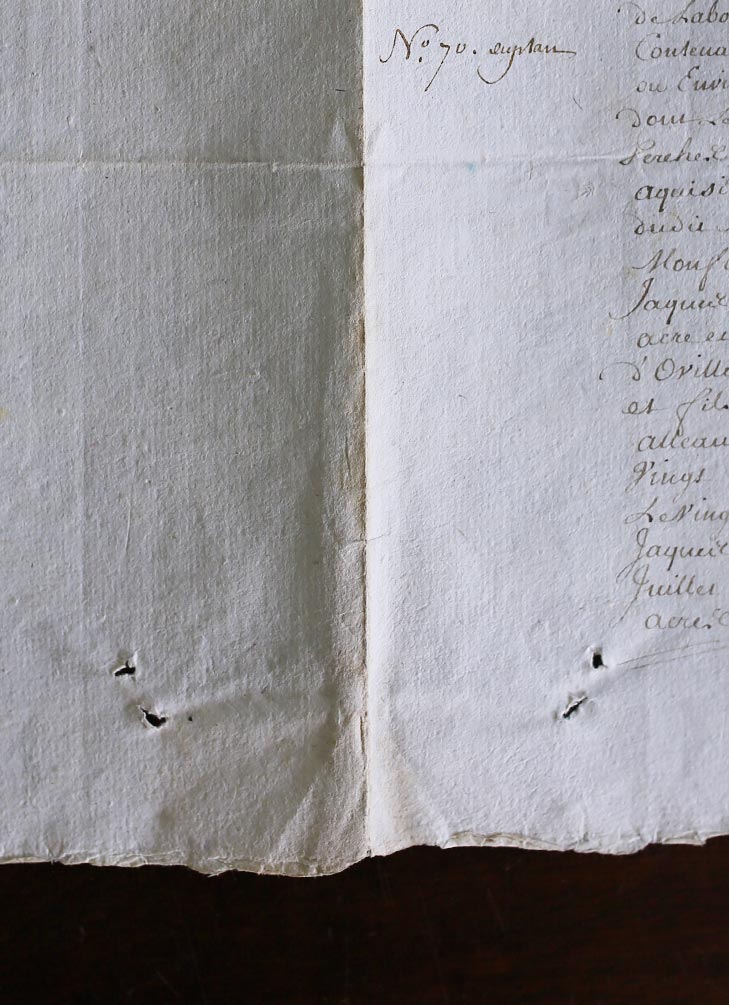 N.º 70. du plan
de Labo
Contena
ou Envi
dont Le
Perches
aquisi
dudit
Mons
Jaques
acre et
d'Orille
et fils
alleau
Vingt
Le Ving
Jaques
Juillet
acres